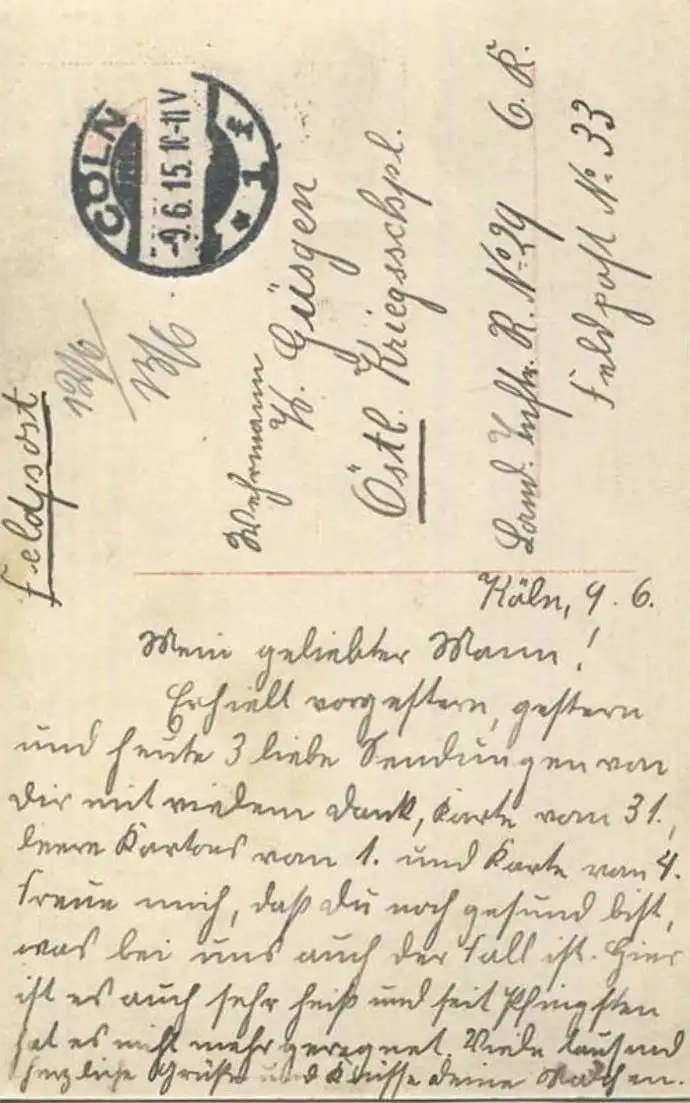 Feldpost
CÖLN
-9.6.15.10-11V
* 1 f
Wehrmann
W. Güsgen
Östl. Kriegsschpl.
Landw. Inftr. R. No 29 6. K.
Feldpost No 33
Köln, 9. 6.
Mein geliebter Mann!
Erhielt vorgestern, gestern
und heute 3 liebe Sendungen von
Dir mit vielem Dank, Karte vom 31.,
leere Kartons vom 1. und Karte vom 4.
Freue mich, daß Du noch gesund bist,
was bei uns auch der Fall ist. Hier
ist es auch sehr heiß und seit Pfingsten
hat es nicht mehr geregnet. Viele tausend
herzliche Grüße und Küsse deine